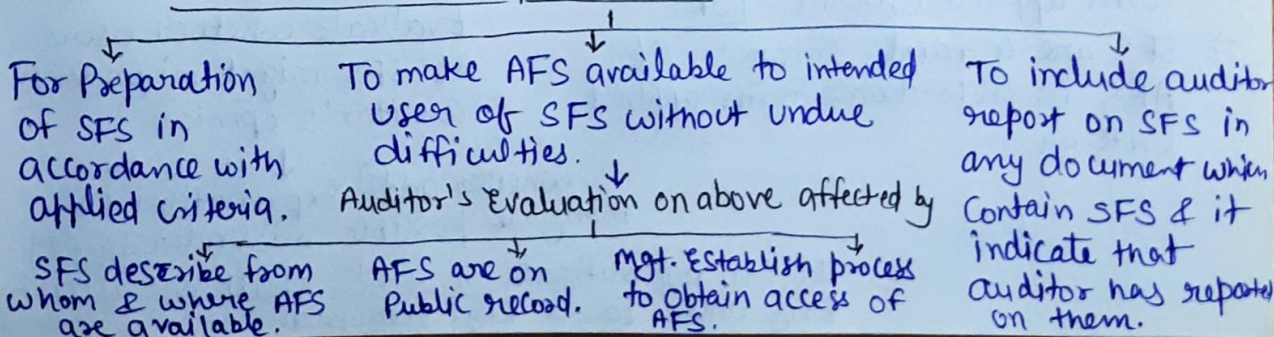 For Preparation
of SFS in
accordance with
applied criteria.
To make AFS available to intended
user of SFS without undue
difficulties.
Auditor's Evaluation on above affected by
SFS describe from
whom & where AFS
are available.
AFS are on
Public record.
Mgt. Establish process
to obtain access of
AFS.
To include auditor
report on SFS in
any document which
Contain SFS & it
indicate that
auditor has reported
on them.